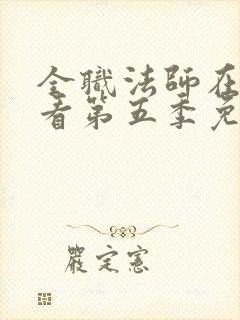 全職法師在
看第五季免
嚴定憲